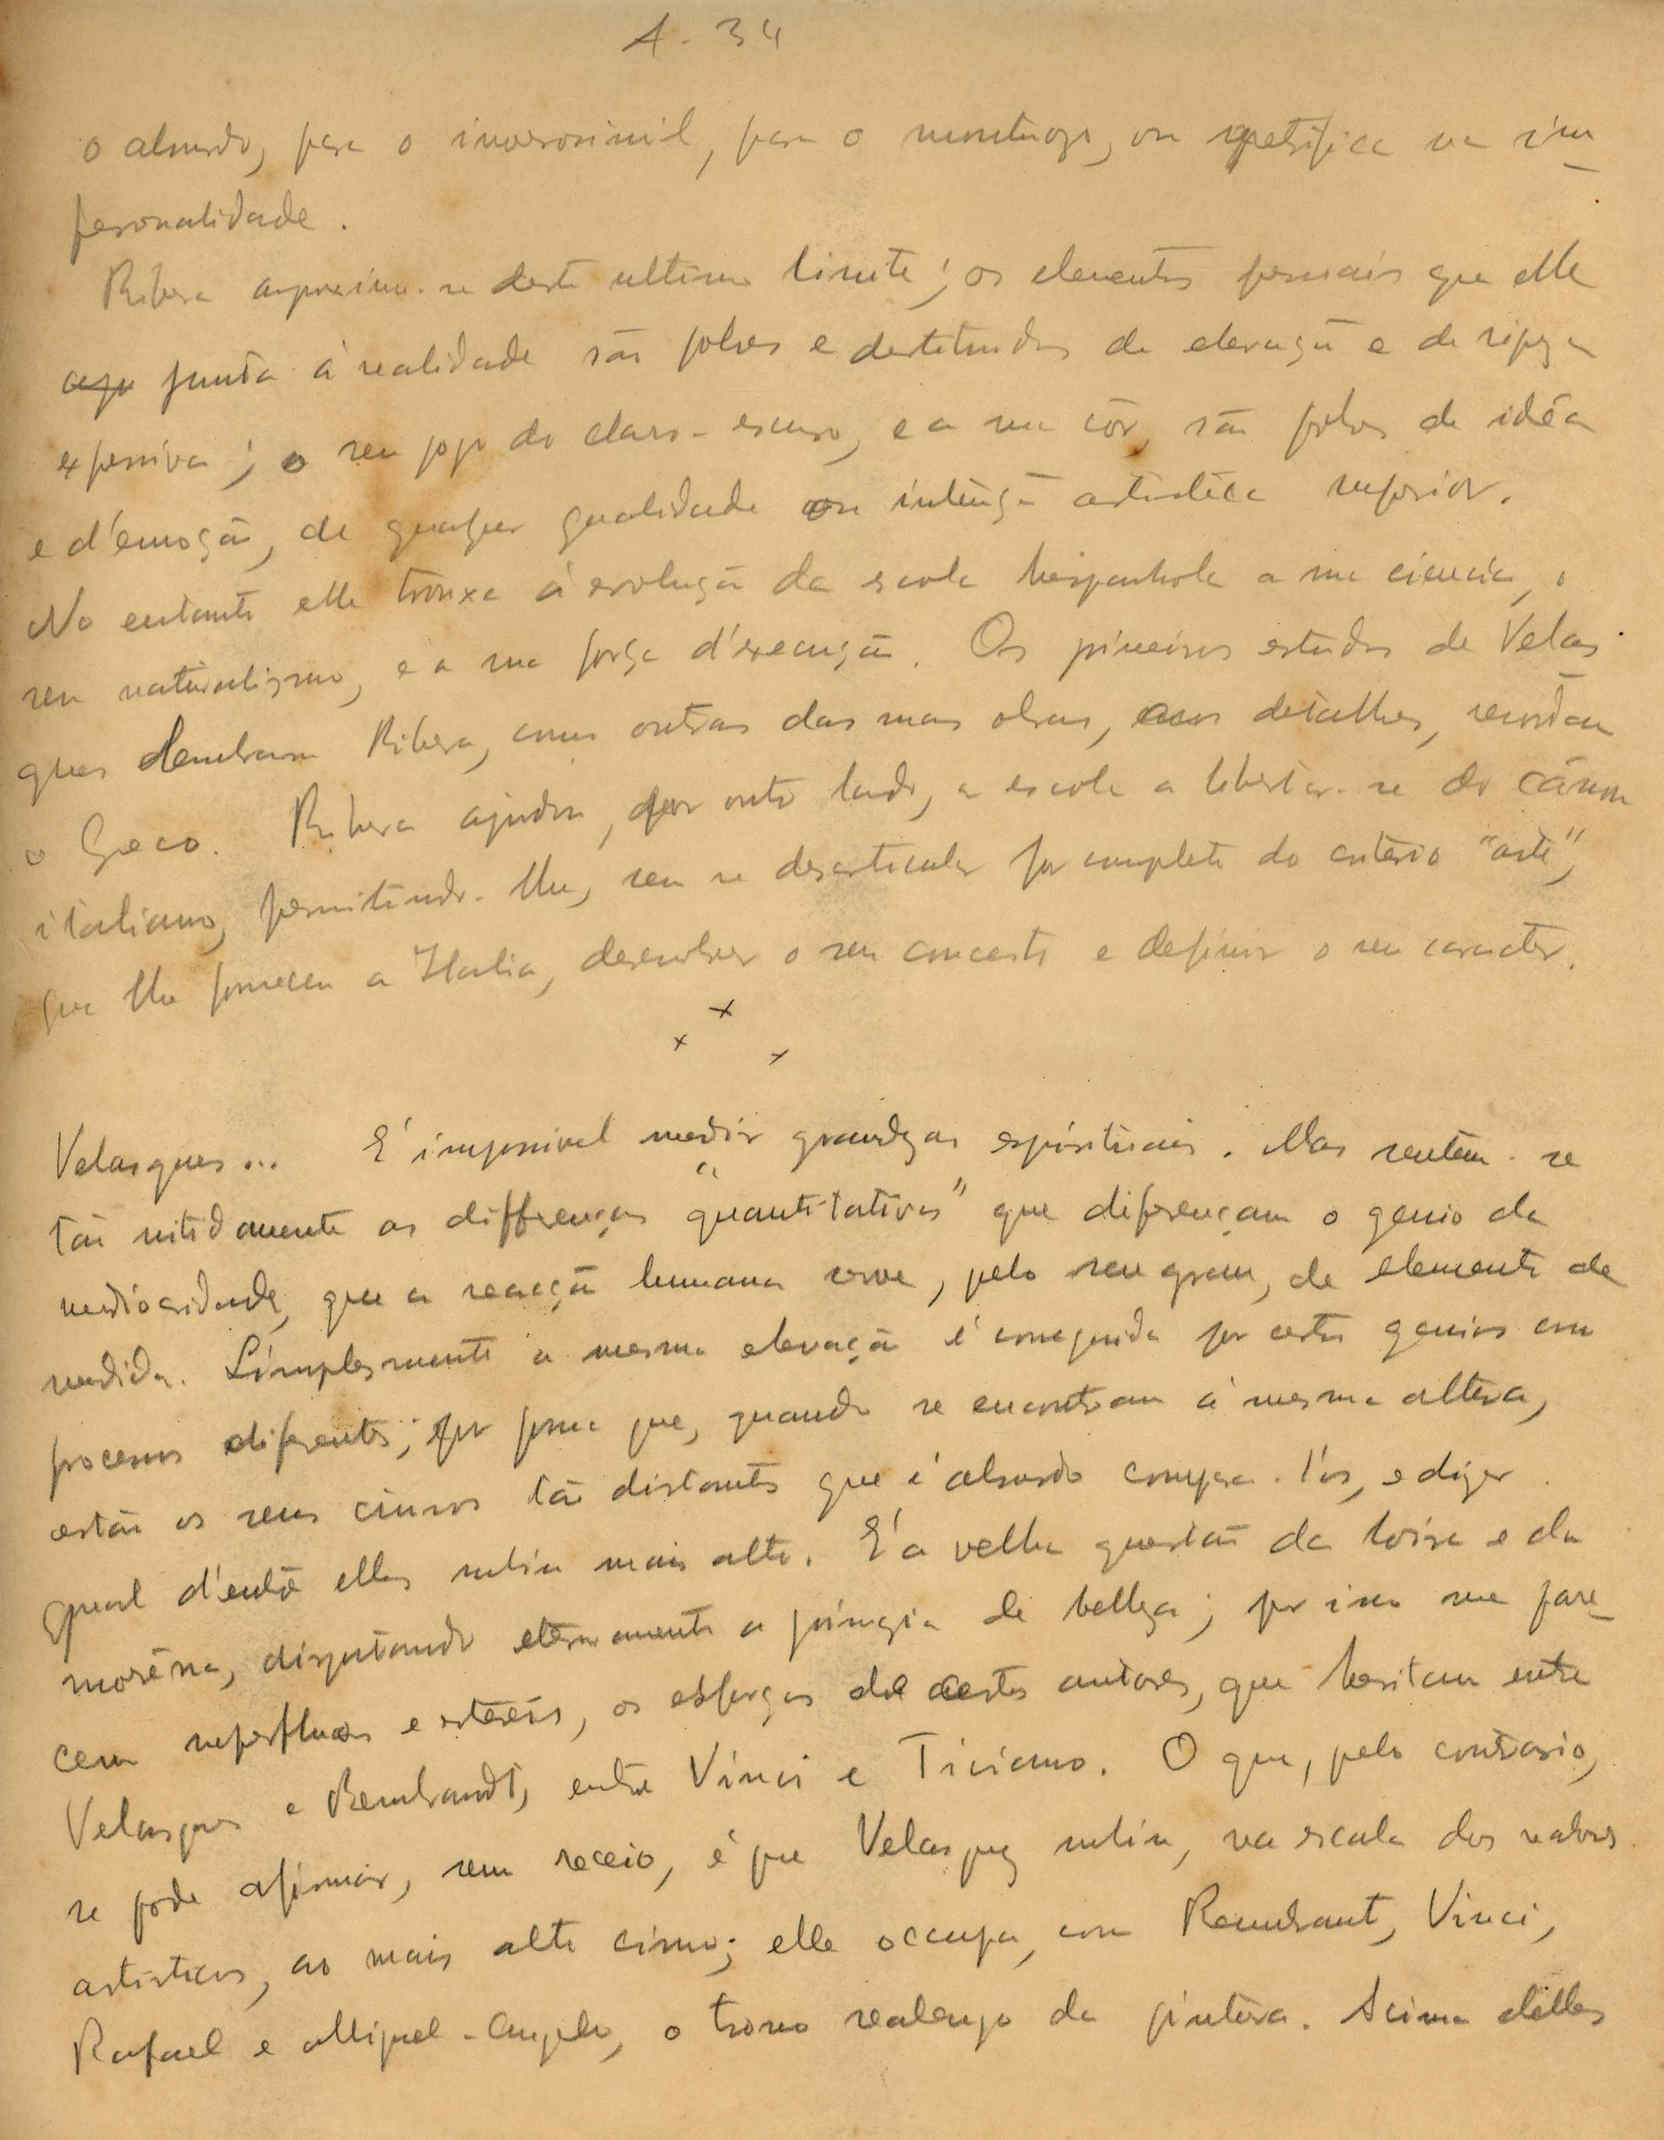 A-34
o absurdo, para o inverosimil, para o monstruoso, ou petrifica na im
personalidade.
Ribera aproxima-se deste ultimo limite; os elementos formais que elle
junta á realidade são pobres e destituidos de elevação e de riqueza
expressiva; o seu jogo do claro-escuro, e a sua côr, são pobres de idéa
e d'emoção, de qualquer qualidade ou intenção artistica superior.
No entanto elle trouxe á evolução da escola hespanhola a sua ciencia, o
seu naturalismo, e a sua força d'execução. Os primeiros estudos de Velas
ques lembram Ribera, como outras das suas obras, nos detalhes, recordam
o Greco. Ribera ajudou, por outro lado, a escola a libertar-se do cánon
italiano, permitindo-lhe, sem se desarticular por completo do criterio "arte",
que lhe forneceu a Italia, desenvolver o seu conceito e definir o seu caracter.
x x x
Velasques... É impossivel medir grandezas espirituais. Mas sentem-se
tão nitidamente as differenças "quantitativas" que diferençam o genio da
mediocridade, que a reacção humana serve, pelo seu grau, de elemento de
medida. Simplesmente a mesma elevação é conseguida por certos genios com
processos diferentes; por forma que, quando se encontram á mesma altura,
estão os seus cimos tão distantes que é absurdo compara-los, e dizer
qual d'entre elles subiu mais alto. É a velha questão da loira e da
moréna, disputando eternamente a primazia de belleza; por isso me pare_
cem superfluos e estereis, os esforços de certos autores, que hesitam entre
Velasques e Rembrandt, entre Vinci e Ticiano. O que, pelo contrario,
se pode afirmar, sem receio, é que Velasquez subiu, na escala dos valores
artisticos, ao mais alto cimo; elle occupa, com Rembrant, Vinci,
Rafael e Miguel-Angelo, o trono realengo da pintura. Acima delles